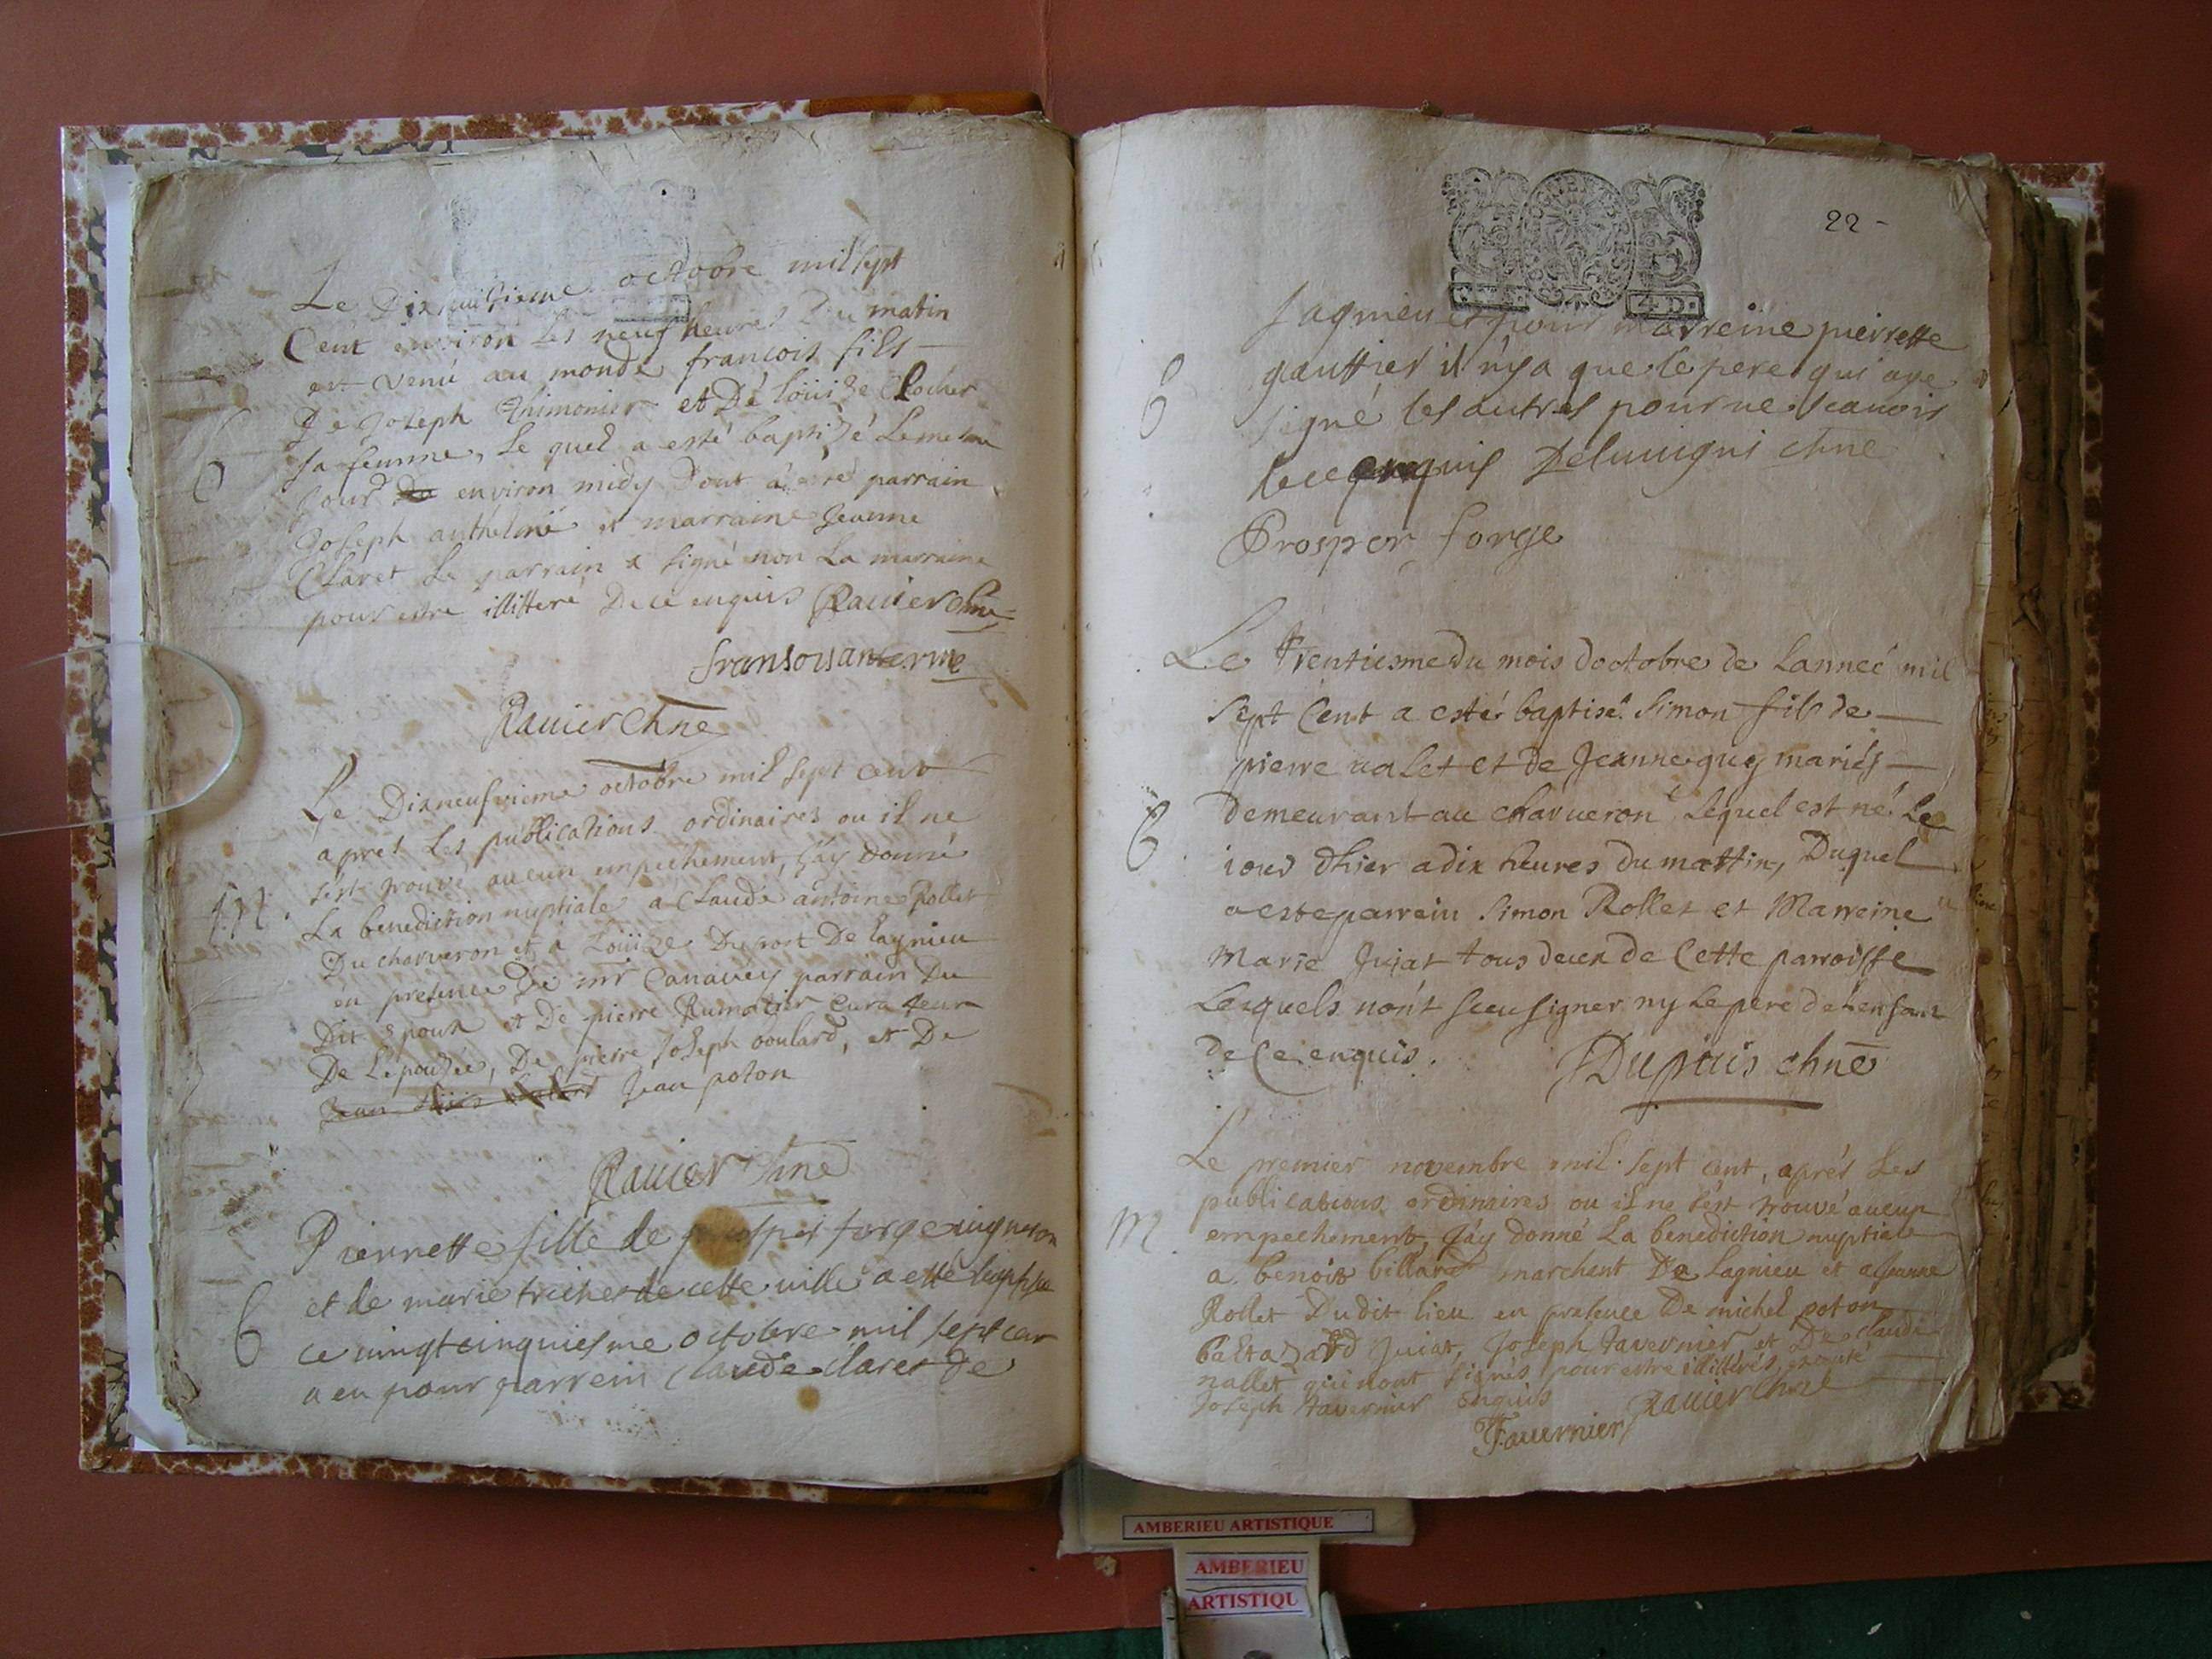 Le Dixhuitieme octobre mil sept
Cent environ les neuf heures Du matin
est venu au monde francois fils
De Joseph Thimonier et De Loüize Clocher
sa femme, Le quel a esté baptizé Le mesme
Jour environ midy Dont a esté parrain
Joseph anthelme et marraine Jeanne
Claret Le parrain a signé non La marraine
pour estre illitteré De ce enquis Rauier chne
fransois anterme
Rauier Chne
Le Dixneufvieme octobre mil sept cent
aprés Les publications ordinaires ou il ne
s'est trouvé aucun empéchement, J'ay Donné
M.
La benediction nuptiale a Claude antoine Rollet
Du charveron et a Loüize Duport De Lagnieu
en presence De mr Canavey parrain Du
Dit Epoux et De pierre Rumatier curateur
De L'epouzée, De pierre Joseph boulard, et De
Jean poton
Rauier Chne
Pierrette fille de prosper forge uigneron
et de marie triche de cette uille a esté baptisé
B
ce uingt cinquiesme octobre mil sept cen
a eu pour parrein Claude Claret de
22 -
4. D.
Lagnieu et pour marreine pierrette
gauttier il n'y a que le pere qui aye
B
signé les autres pour ne scauoir
de ce enquis Deluuigni chne
Prosper forge
Le trentiesme du mois doctobre de Lanneé mil
sept Cent a esté baptisé Simon fils de
pierre ualet et de Jeanne guy mariés
demeurant au charueron Lequel est né Le
B
iour dhier a dix heures du mattin, Duquel
a este parrein Simon Rollet et Marreine
Marie Jujat tous deux de Cette parroisse
Lesquels nont sceu signer ny Le pere de Lenfant
de Ce enquis. Dupuis chne
Le premier novembre mil sept cent, aprés Les
publications ordinaires ou il ne s'est trouvé aucun
M.
empechement, J'ay donné La benediction nuptiale
a benoit billard marchant De Lagnieu et a Jeanne
Rollet Dudit lieu en presence De michel poton
baltazard Jujat, Joseph tavernier et De claude
nallet qui n'ont signés pour estre illitterés, excepté
Joseph tavernier enquis Rauier Chne
Tauernier
AMBERIEU ARTISTIQUE
AMBERIEU
ARTISTIQU